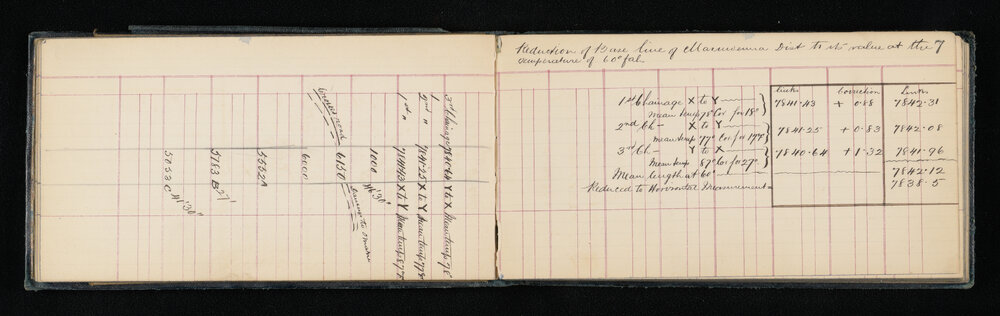 3rd Chainage 7840.64 Y to X Mean temp 78°
2nd " 7841.25 X to Y Mean temp 77°
1st " 7841.43 X to Y Mean temp 87°
1000 46°30"
6150
6000
5552A
5783 B 27'
5053 C 44°30"
Reduction of Base line of Dist to its value at the 7
temperature of 60° fah.
links Correction Links
1st Chainage X to Y 7841.43 + 0.88 7842.31
mean temp 78° Cor for 18°
2nd Ch - X to Y 7841.25 + 0.83 7842.08
mean temp 77° Cor for 17°
3rd Ch - Y to X 7840.64 + 1.32 7841.96
Mean temp 87° Cor for 27°
Mean length at 60° 7842.12
Reduced to Horizontal Measurement = 7838.5